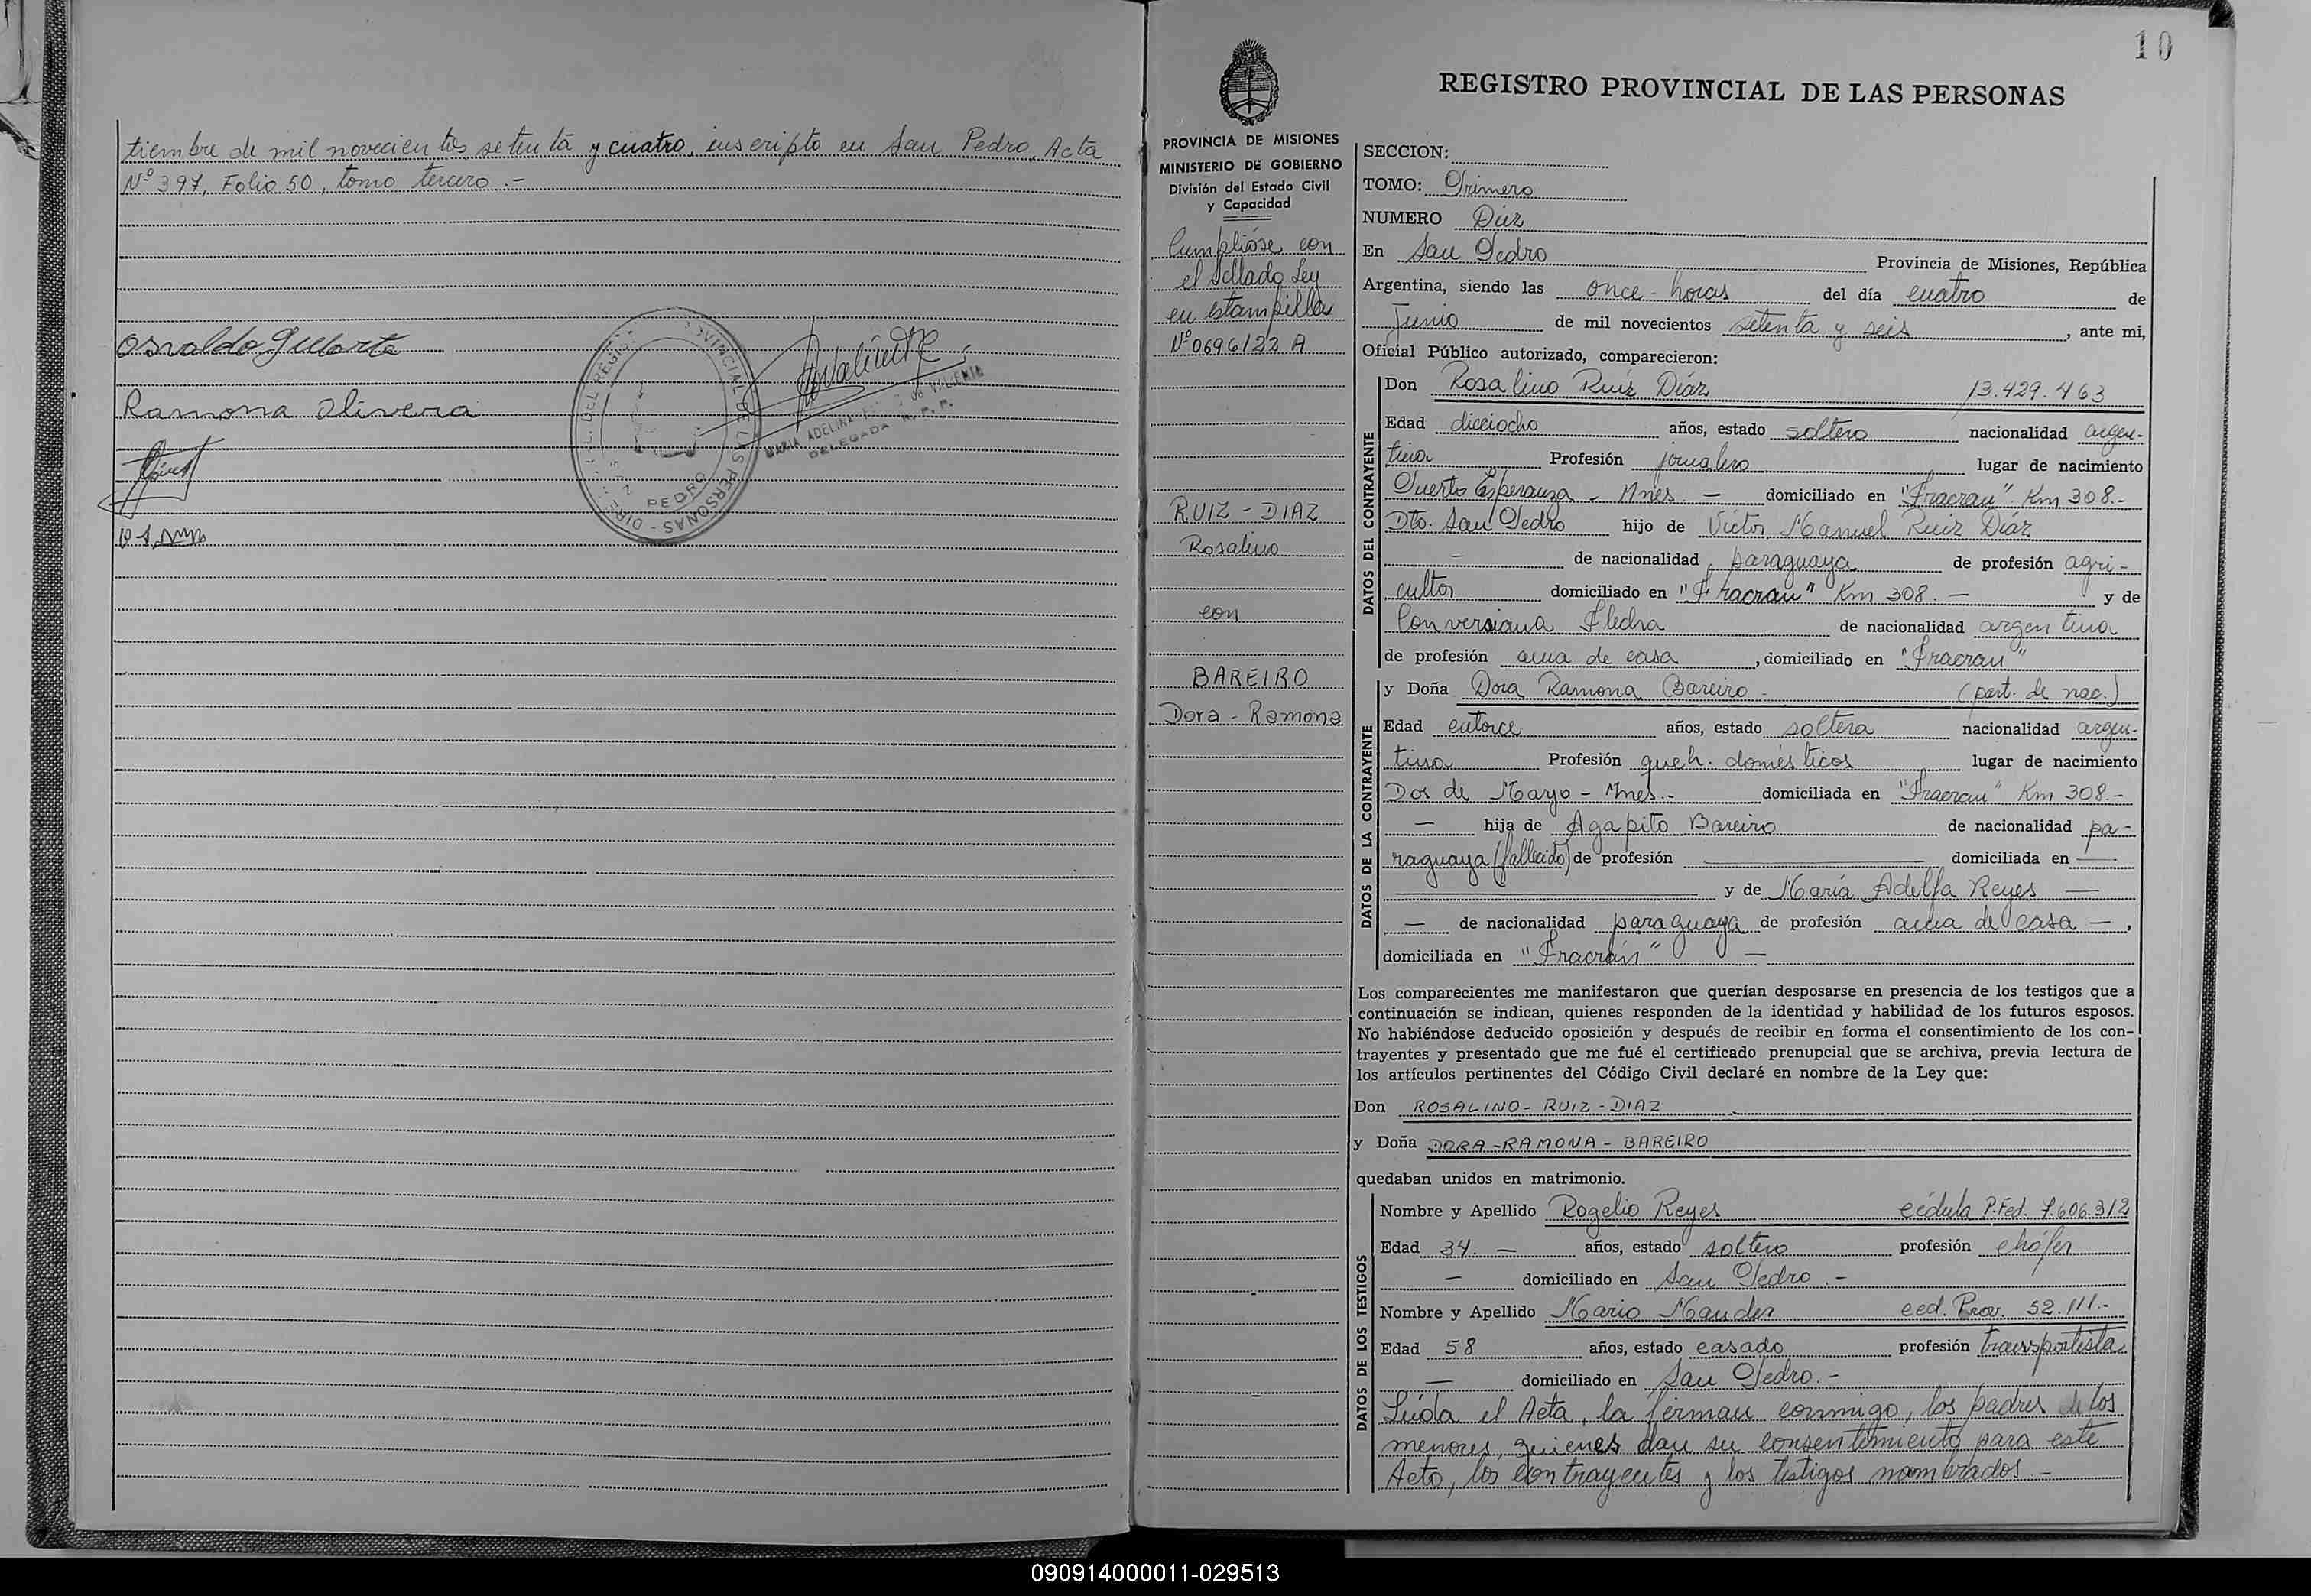 tiembre de mil novecientos setenta y cuatro, inscripto en San Pedro, Acta
Nº 397, Folio 50, tomo tercero.-
Osvaldo
Ramona Olivera
DELEGADA R. P. P.
PROVINCIAL DE LAS PERSONAS
PEDRO
10
REGISTRO PROVINCIAL DE LAS PERSONAS
PROVINCIA DE MISIONES
MINISTERIO DE GOBIERNO
División del Estado Civil
y Capacidad
Cumplióse con
el Sellado Ley
en estampilla
Nº 0696122 A
RUIZ - DIAZ
Rosalino
con
BAREIRO
Dora - Ramona
SECCION:
TOMO: Primero
NUMERO Diez
En San Pedro Provincia de Misiones, República
Argentina, siendo las once - horas del día cuatro de
Junio de mil novecientos setenta y seis, ante mi,
Oficial Público autorizado, comparecieron:
DATOS DEL CONTRAYENTE
Don Rosalino Ruiz Díaz 13.429.463
Edad dieciocho años, estado soltero nacionalidad argen-
tina Profesión jornalero lugar de nacimiento
Puerto Esperanza - Mnes. - domiciliado en "Fracran" Km 308.-
Dto. San Pedro hijo de Víctor Manuel Ruiz Díaz
- de nacionalidad paraguaya de profesión agri-
cultor domiciliado en "Fracran" Km 308. - y de
Conversiana Flecha de nacionalidad argentina
de profesión ama de casa, domiciliado en "Fracran"
DATOS DE LA CONTRAYENTE
y Doña Dora Ramona Bareiro - (part. de nac.)
Edad catorce años, estado soltera nacionalidad argen-
tina Profesión queh. domésticos lugar de nacimiento
Dos de Mayo - Mnes.- domiciliada en "Fracran" Km 308.-
- hija de Agapito Bareiro de nacionalidad pa-
raguaya (fallecido) de profesión — domiciliada en —
— y de María Adelfa Reyes —
— de nacionalidad paraguaya de profesión ama de casa —,
domiciliada en "Fracrán" —
Los comparecientes me manifestaron que querían desposarse en presencia de los testigos que a
continuación se indican, quienes responden de la identidad y habilidad de los futuros esposos.
No habiéndose deducido oposición y después de recibir en forma el consentimiento de los con-
trayentes y presentado que me fué el certificado prenupcial que se archiva, previa lectura de
los artículos pertinentes del Código Civil declaré en nombre de la Ley que:
Don ROSALINO - RUIZ - DIAZ
y Doña DORA - RAMONA - BAREIRO
quedaban unidos en matrimonio.
DATOS DE LOS TESTIGOS
Nombre y Apellido Rogelio Reyes cédula P.Fed. 7.606.312
Edad 34. — años, estado soltero profesión chófer
— domiciliado en San Pedro.-
Nombre y Apellido Mario Mander ced. Prov. 52.111.-
Edad 58 años, estado casado profesión transportista
— domiciliado en San Pedro.-
Leída el Acta, la firman conmigo, los padres de los
menores quienes dan su consentimiento para este
Acto, los contrayentes y los testigos nombrados.-
090914000011-029513